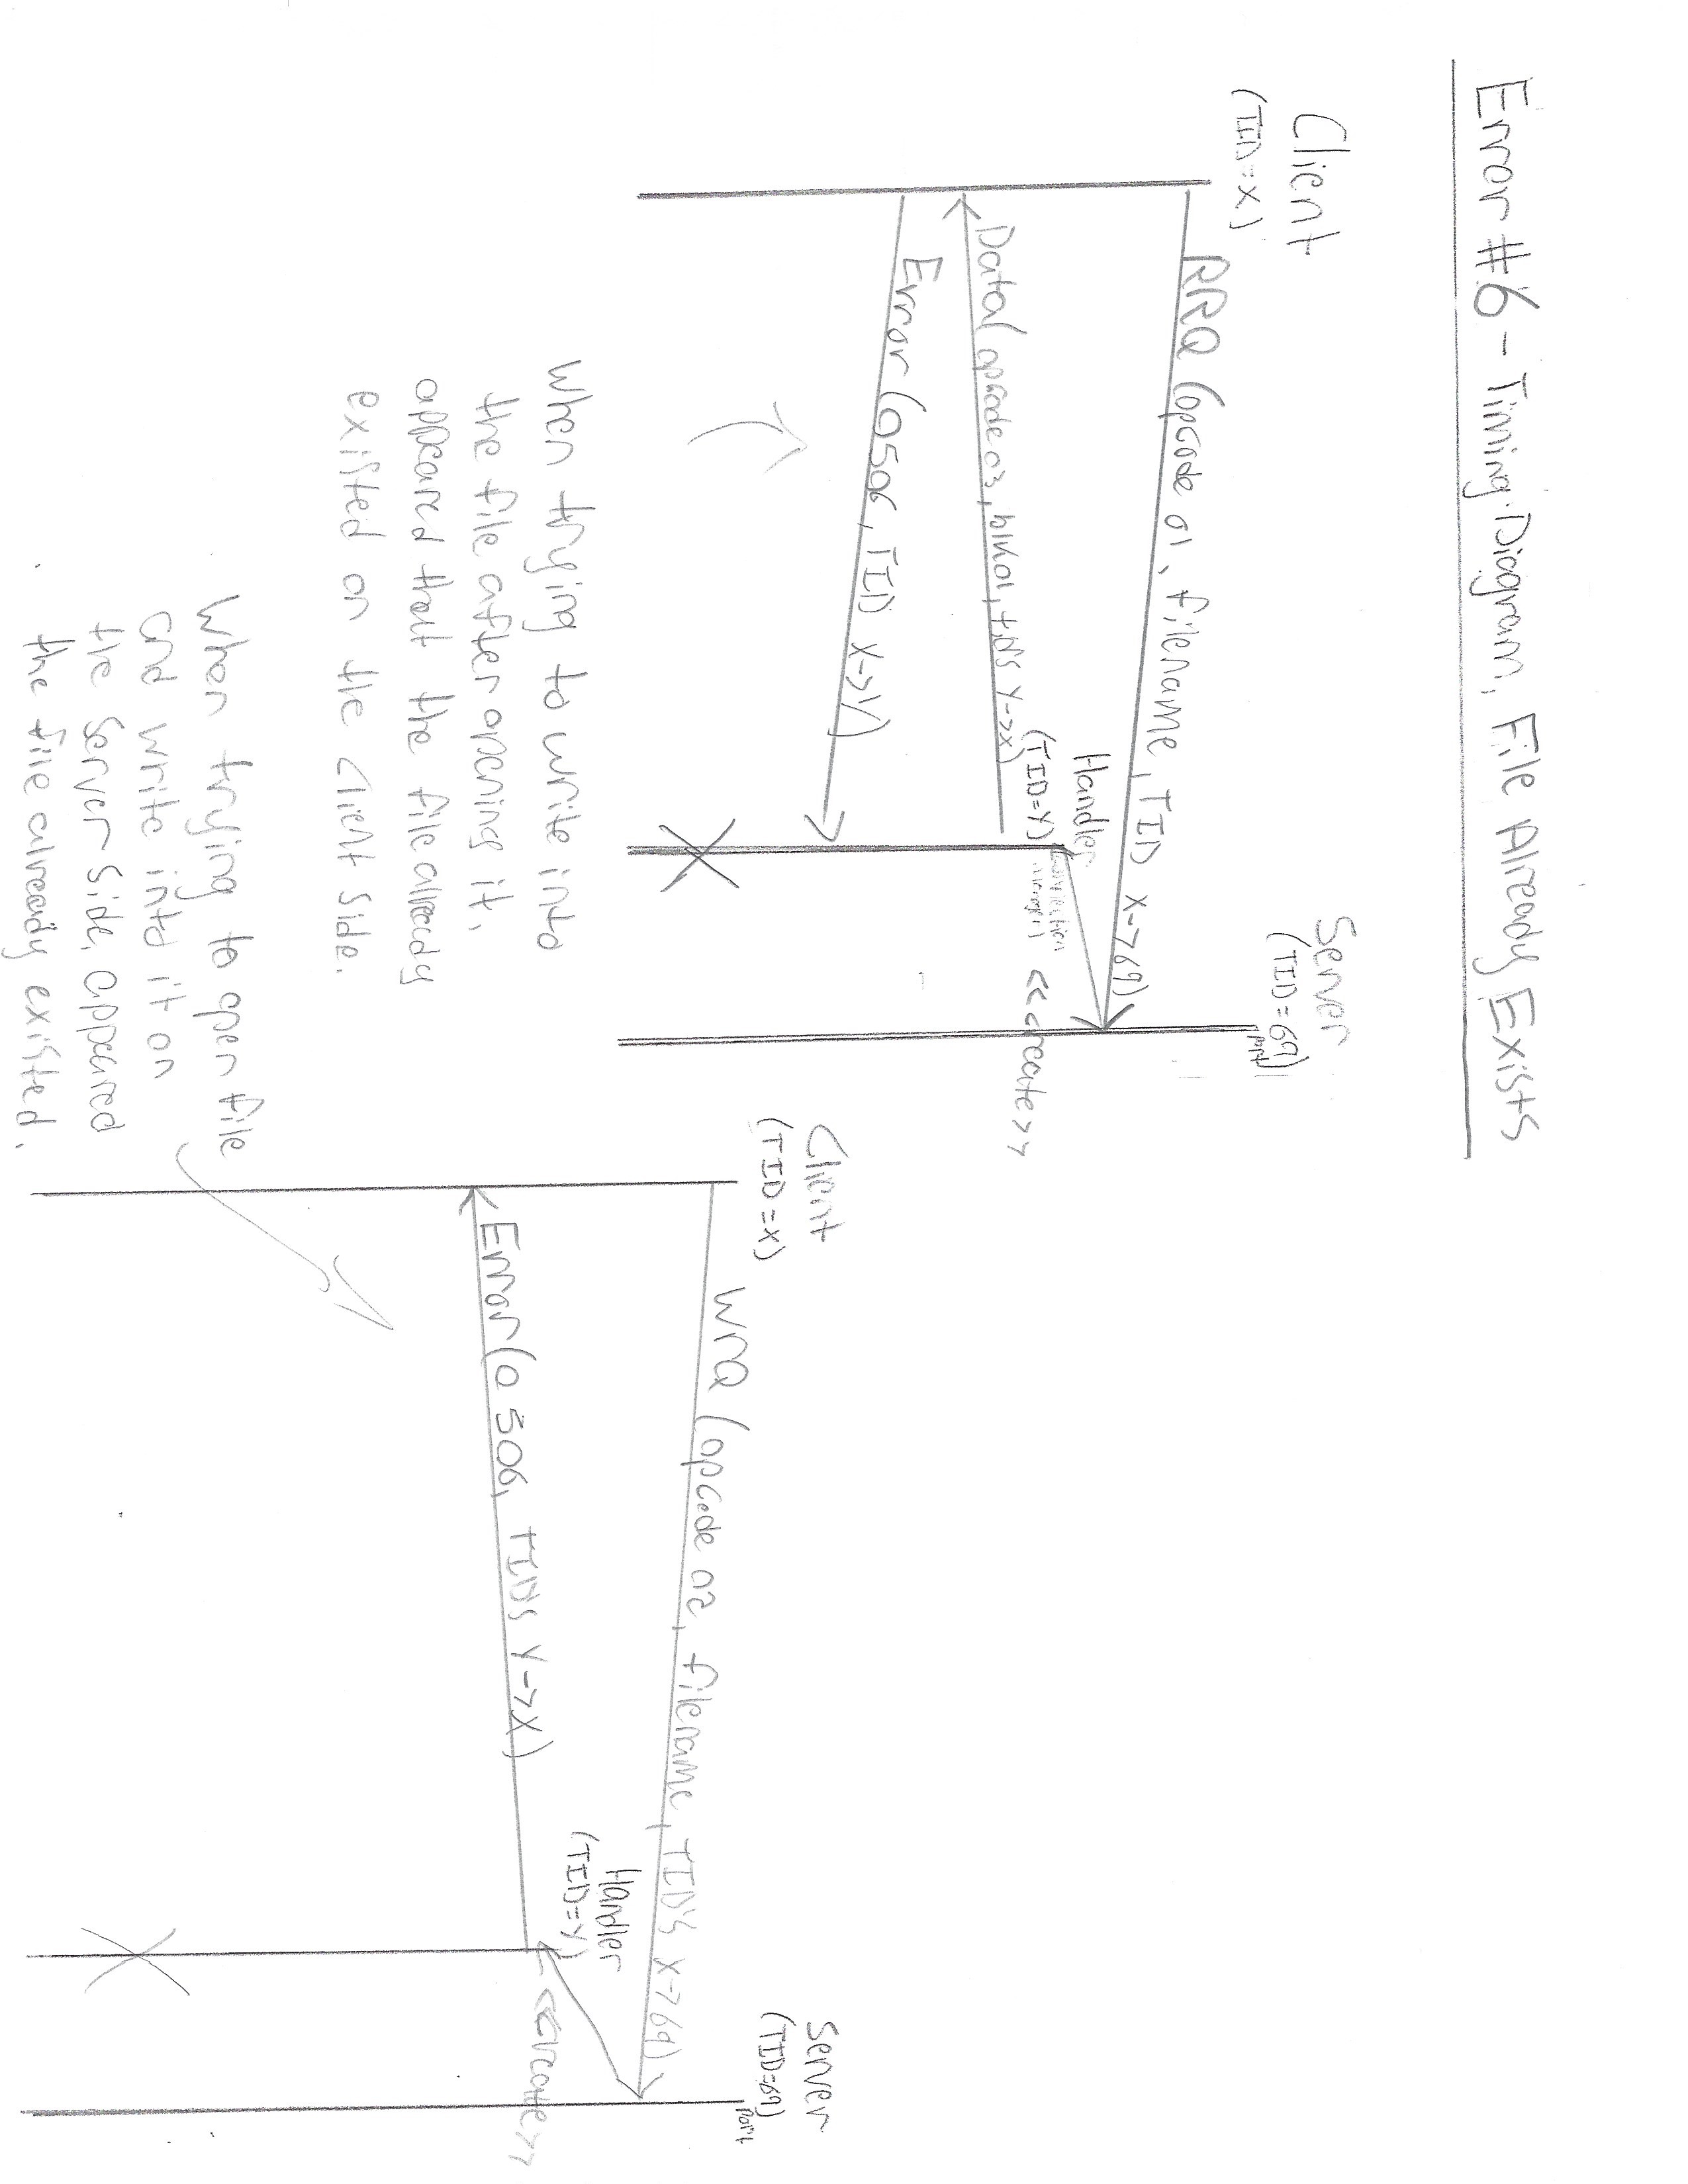 Error #6 - Timing Diagram, File Already Exists
Client
(TID=X)
Server
(TID=69)
port
RRQ (opcode 01, filename, TID X->69)
Handler
(TID=Y)
<<create>>
Data(opcode 03, blk01, tid's Y->X)
Error (0506, TID X->Y)
When trying to write into
the file after opening it,
appeared that the file already
existed on the client side.
Client
(TID=X)
Server
(TID=69)
port
WRQ (opcode 02, filename, TID'S X->69)
Handler
(TID=Y)
<<create>>
Error(0506, TID'S Y->X)
When trying to open file
and write into it on
the Server side, appeared
the file already existed.